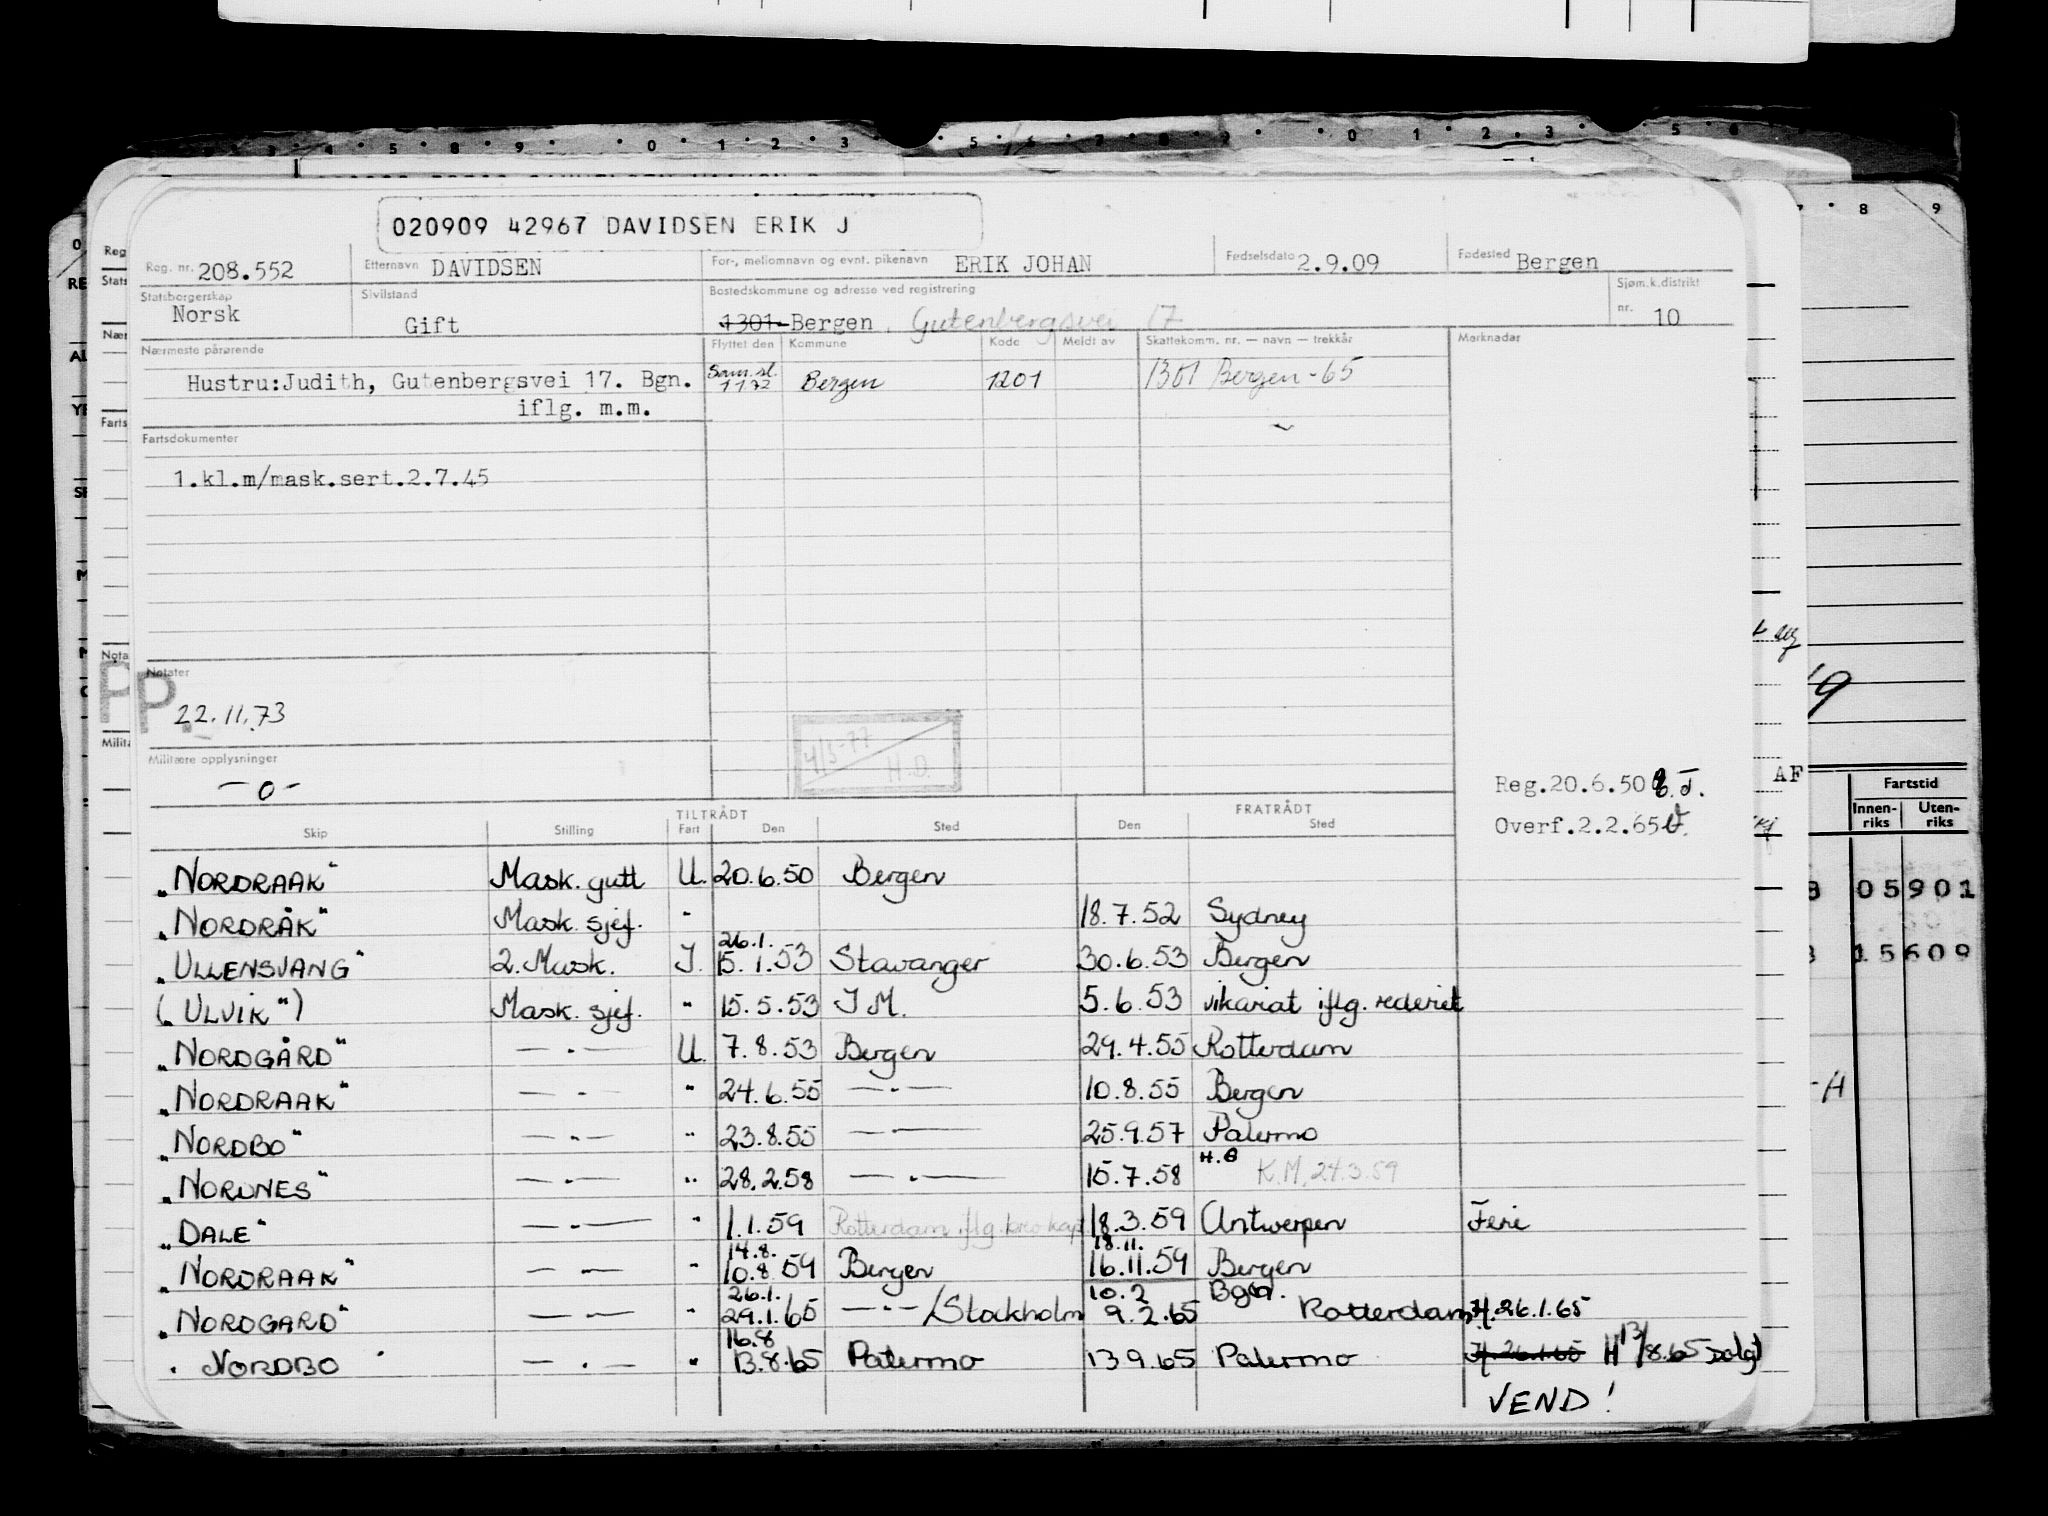 020909 42967 DAVIDSEN ERIK J
Reg. nr. 208.552 Etternavn DAVIDSEN For-, mellomnavn og evnt. pikenavn ERIK JOHAN Fødselsdato 2.9.09 Fødested Bergen
Statsborgerskap Norsk Sivilstand Gift Bostedskommune og adresse ved registrering 1301 Bergen, Gutenbergsvei 17 Sjøm.k.distrikt nr. 10
Nærmeste pårørende Flyttet den Kommune Kode Meldt av Skattekomm. nr. — navn — trekkår Merknader
Hustru:Judith, Gutenbergsvei 17. Bgn. Sam. st. 1 1 72 Bergen 1201 1301 Bergen -65
iflg. m.m.
Fartsdokumenter
1.kl.m/mask.sert.2.7.45
Notater
PP.
22.11.73
4/3-77
H.D.
Militære opplysninger
-o-
Reg.20.6.50
Overf.2.2.65
TILTRÅDT FRATRÅDT
Skip Stilling Fart Den Sted Den Sted
„NORDRAAK" Mask. gutt U. 20.6.50 Bergen
„NORDRÅK" Mask. sjef. " 18.7.52 Sydney
26.1.
„ULLENSVANG" 2. Mask. I. 15.1.53 Stavanger 30.6.53 Bergen
(„ULVIK") Mask. sjef. " 15.5.53 I M. 5.6.53 vikariat iflg. rederiet
„NORDGÅRD" — . — U. 7.8.53 Bergen 29.4.55 Rotterdam
„NORDRAAK" — . — " 24.6.55 — . — 10.8.55 Bergen
„NORDBO" — . — " 23.8.55 — . — 25.9.57 Palermo
„NORDNES" — . — " 28.2.58 — . — 15.7.58 H.G K.M. 24.3.59
„DALE" — . — " 1.1.59 Rotterdam iflg. 18.3.59 Antwerpen Ferie
14.8. 18.11.
„NORDRAAK" — . — " 10.8.59 Bergen 16.11.59 Bergen
26.1. 10.2 Bgn.
„NORDGARD" — . — " 29.1.65 — . — /Stockholm 9.2.65 Rotterdam H. 26.1.65
16.8
„NORDBO" — . — " 13.8.65 Palermo 13.9.65 Palermo H. 26.1.65 H 13/8.65 Solgt
VEND!
Fartstid
Innen-riks Uten-riks
05901
15609